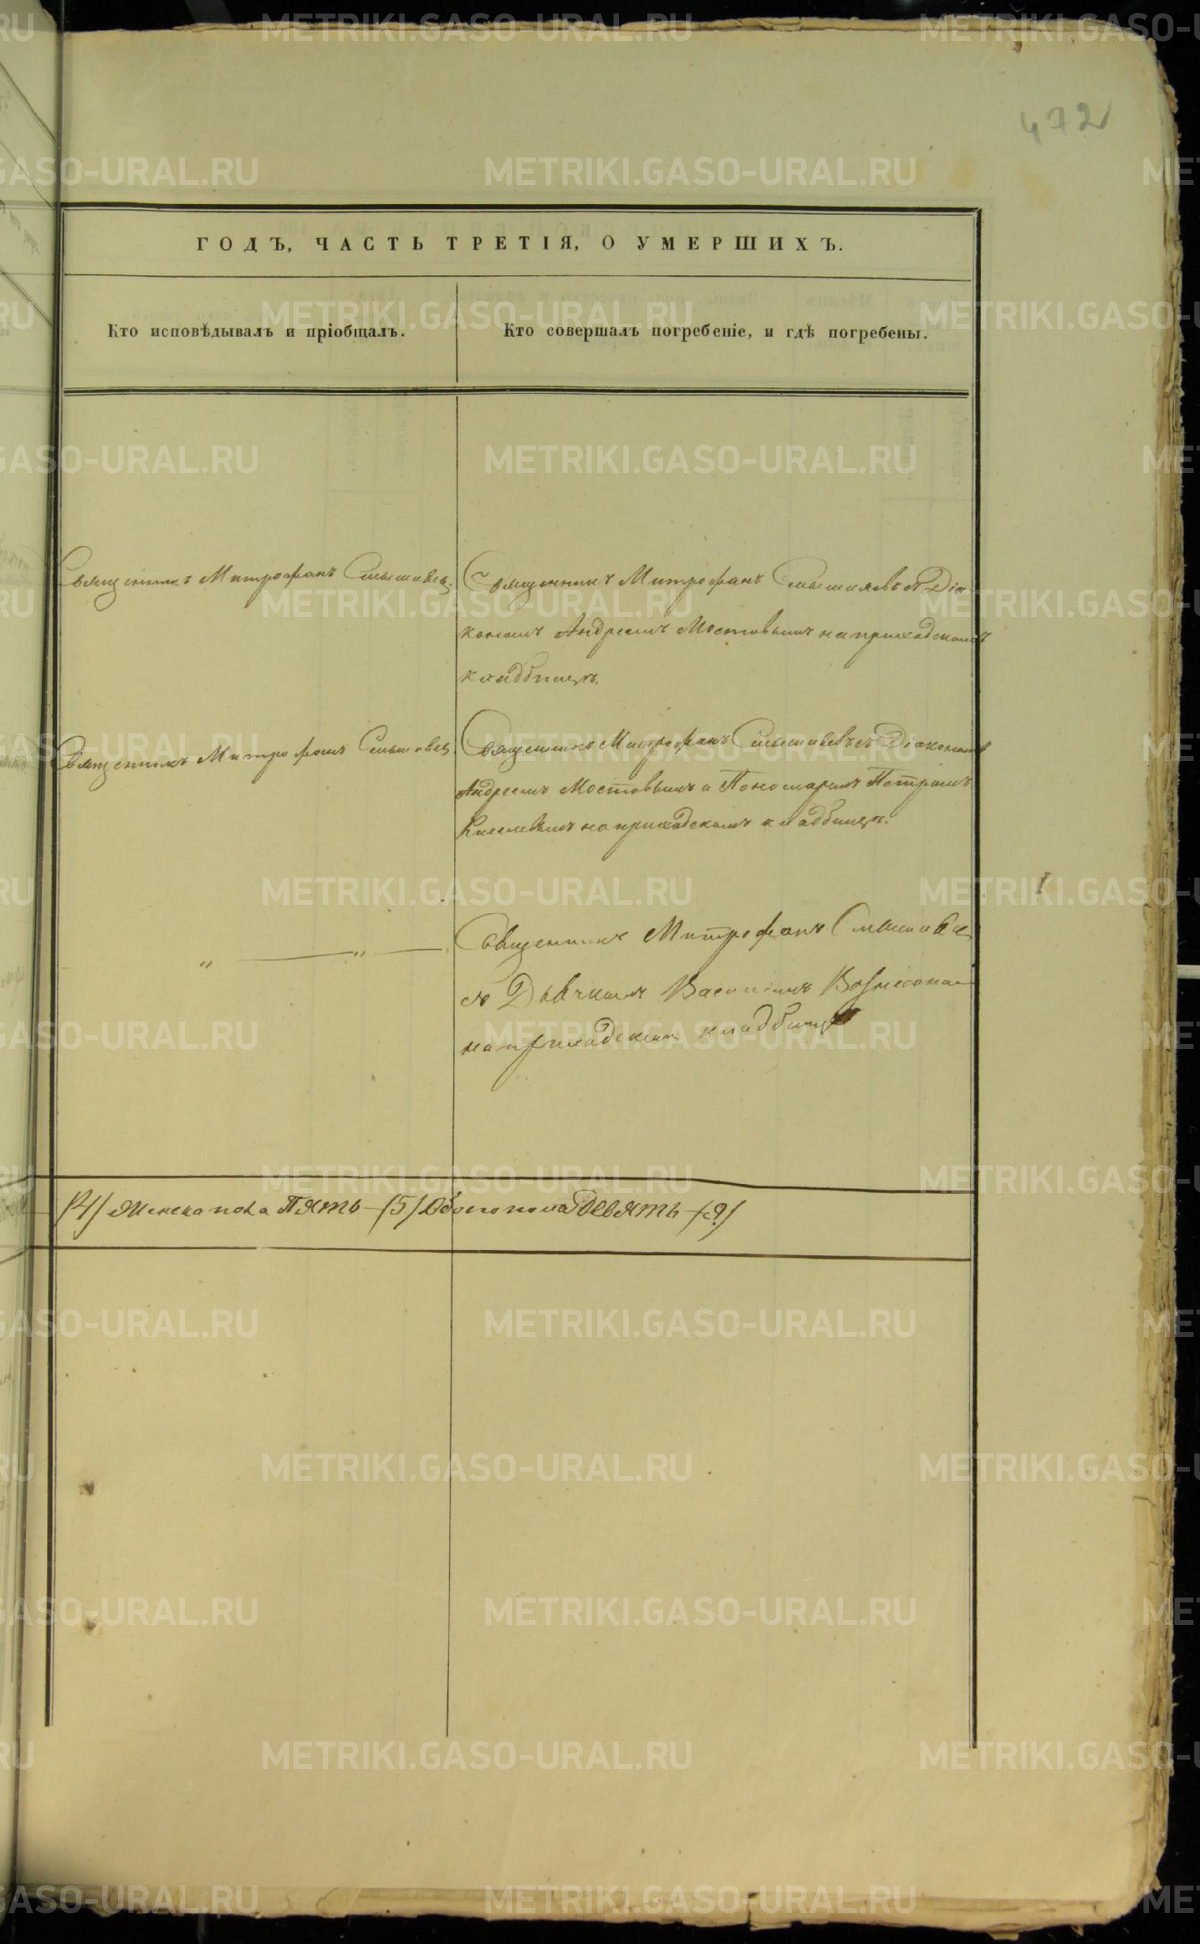 472
ГОДЪ, ЧАСТЬ ТРЕТІЯ, О УМЕРШИХЪ.
Кто исповѣдывалъ и пріобщалъ.
Кто совершалъ погребеніе, и гдѣ погребены.
Священникъ Митрофанъ
Священникъ Митрофанъ съ Діа-
кономъ Андреемъ Мостовымъ на приходскомъ
кладбищѣ.
Священникъ Митрофанъ
Священникъ Митрофанъ съ Діакономъ
Андреемъ Мостовымъ и Пономаремъ Петромъ
Киселевымъ на приходскомъ кладбищѣ.
" — " —
Священникъ Митрофанъ
съ Дьячкомъ Василіемъ
на приходскомъ кладбищѣ
(4) Женска пола Пять — (5) Обоего пола Девять — (9)
METRIKI.GASO-URAL.RU